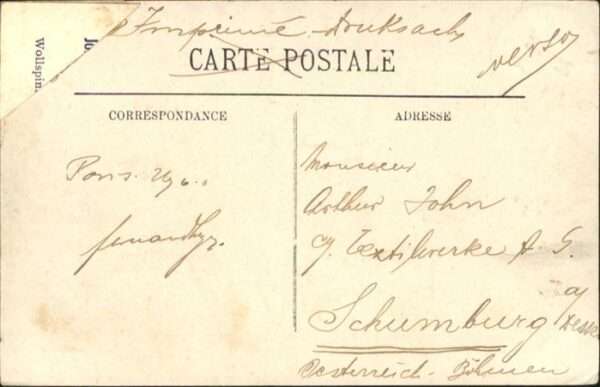 Imprimé - Druksach
Jo
Wollspin.
CARTE POSTALE
verso
CORRESPONDANCE
ADRESSE
Monsieur
Arthur John
Textilwerke A. G.
Schumburg a/
Oesterreich - Böhmen
Paris